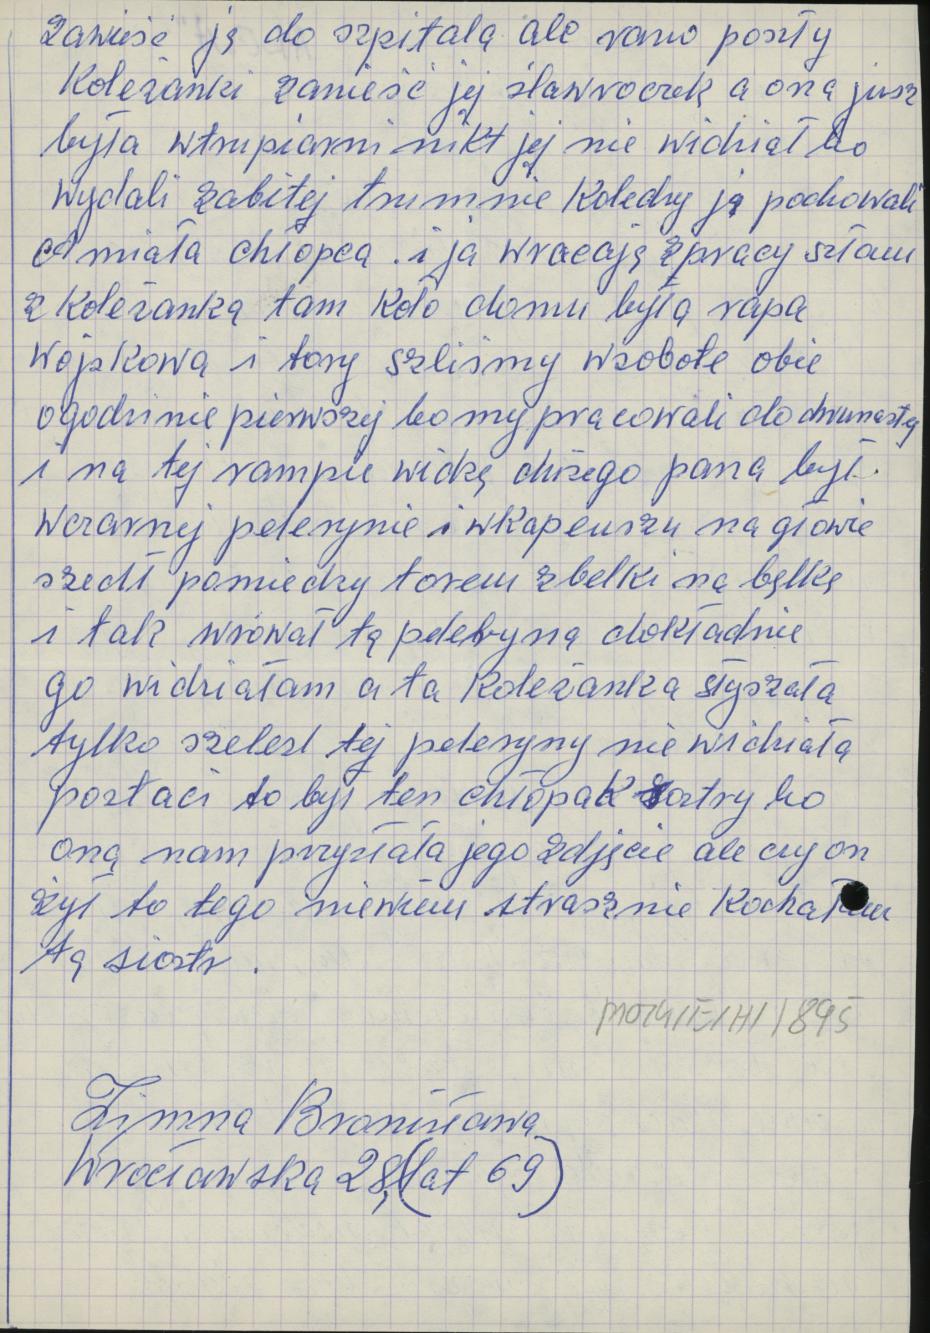 zawieść ją do szpitala ale rano poszły
Koleżanki zanieść jej śławroczek a oną jusz
była wtrupiarni nikt jej nie widział bo
wydali zabitej trumnie Koledzy ją pochowali
miała chłopca . i ja wracają zpracy szłam
z Koleżanką tam Koło domu byłą rapa
wojskową i tory szliśmy wsobote obie
ogodzinie pierwszej bo my pracowali do dwunastej
i na tej rampie widzę dużego paną był.
wczarnej pelerynie i wkapeuszu na głowie
szedł pomiedzy torem zbelki na belkę
i tak wiował tą peleryną dokładnie
go widziałam a ta Koleżanką słyszała
tylko szelest tej peleryny nie widziałą
postaci to był ten chłopak siostry bo
oną nam przysłała jego zdjęcie ale czy on
żył to tego niewiem strasznie Kochałam
tą siostr .
/895
Zimna Bronisława
Wrocławska 28, (lat 69)